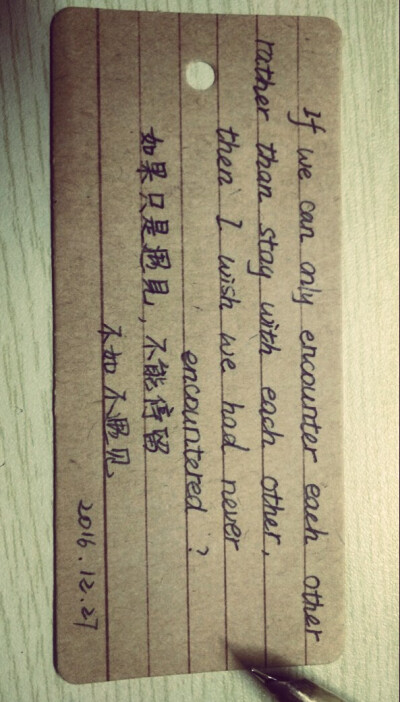 If we can only encounter each other
rather than stay with each other,
then I wish we had never
encountered ?
如果只是遇见,不能停留
不如不遇见
2016.12.27